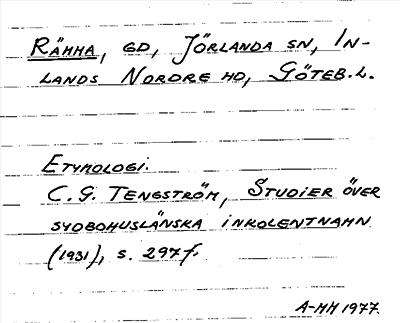 RÄMMA, GD, JÖRLANDA SN, IN-
LANDS NORDRE HD, GÖTEB. L.
ETYMOLOGI.
C. G. TENGSTRÖM, STUDIER ÖVER
SYDBOHUSLÄNSKA INKOLENTNAMN
(1931), S. 297 f.
A-MH 1977.